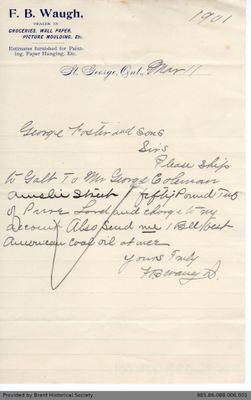 F. B. Waugh,
DEALER IN
GROCERIES, WALL PAPER,
PICTURE MOULDING, Etc.
Estimates furnished for Paint-
ing, Paper Hanging, Etc.
1901
St. George, Ont., Mar 11
George Foster and Sons
Sirs
Please Ship
to Galt To Mr George Coleman
Street fifty Pound Tub
of Pure Lard and charge to my
account Also Send me 1 Bbl best
American Coal oil at once
Yours Truly
F B Waugh
Provided by Brant Historical Society
985.86.088.006.801